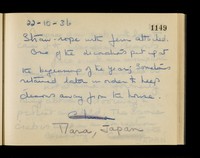 22-10-26
1149
Straw-rope with fern attached.
One of the decorations put up at
the beginning of the year, sometimes
retained later in order to keep
demons away from the house.
Nara, Japan